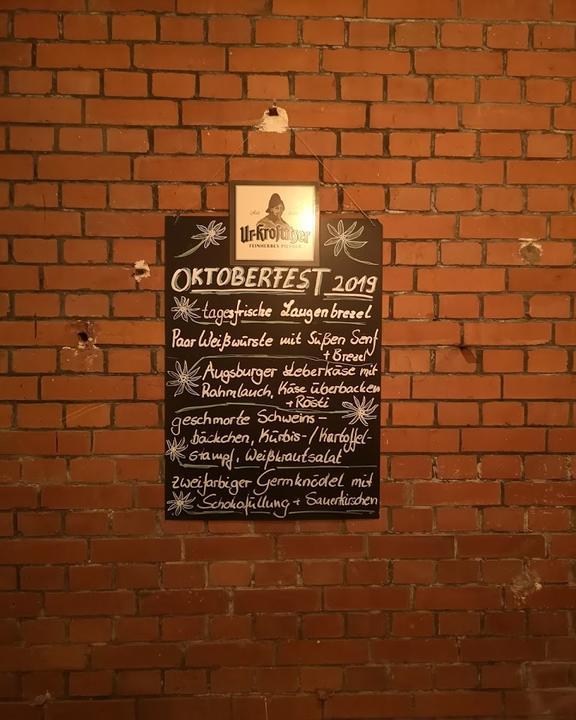 Ur-Krostitzer
FEINHERBES PILSNER
OKTOBERFEST 2019
tagesfrische Laugenbrezel
Paar Weißwürste mit Süßen Senf
+ Brezel
Augsburger Leberkäse mit
Rahmlauch, Käse überbacken
+ Rösti
geschmorte Schweins-
bäckchen, Kürbis-/Kartoffel-
stampf, Weißkrautsalat
zweifarbiger Germknödel mit
Schokofüllung + Sauerkirschen